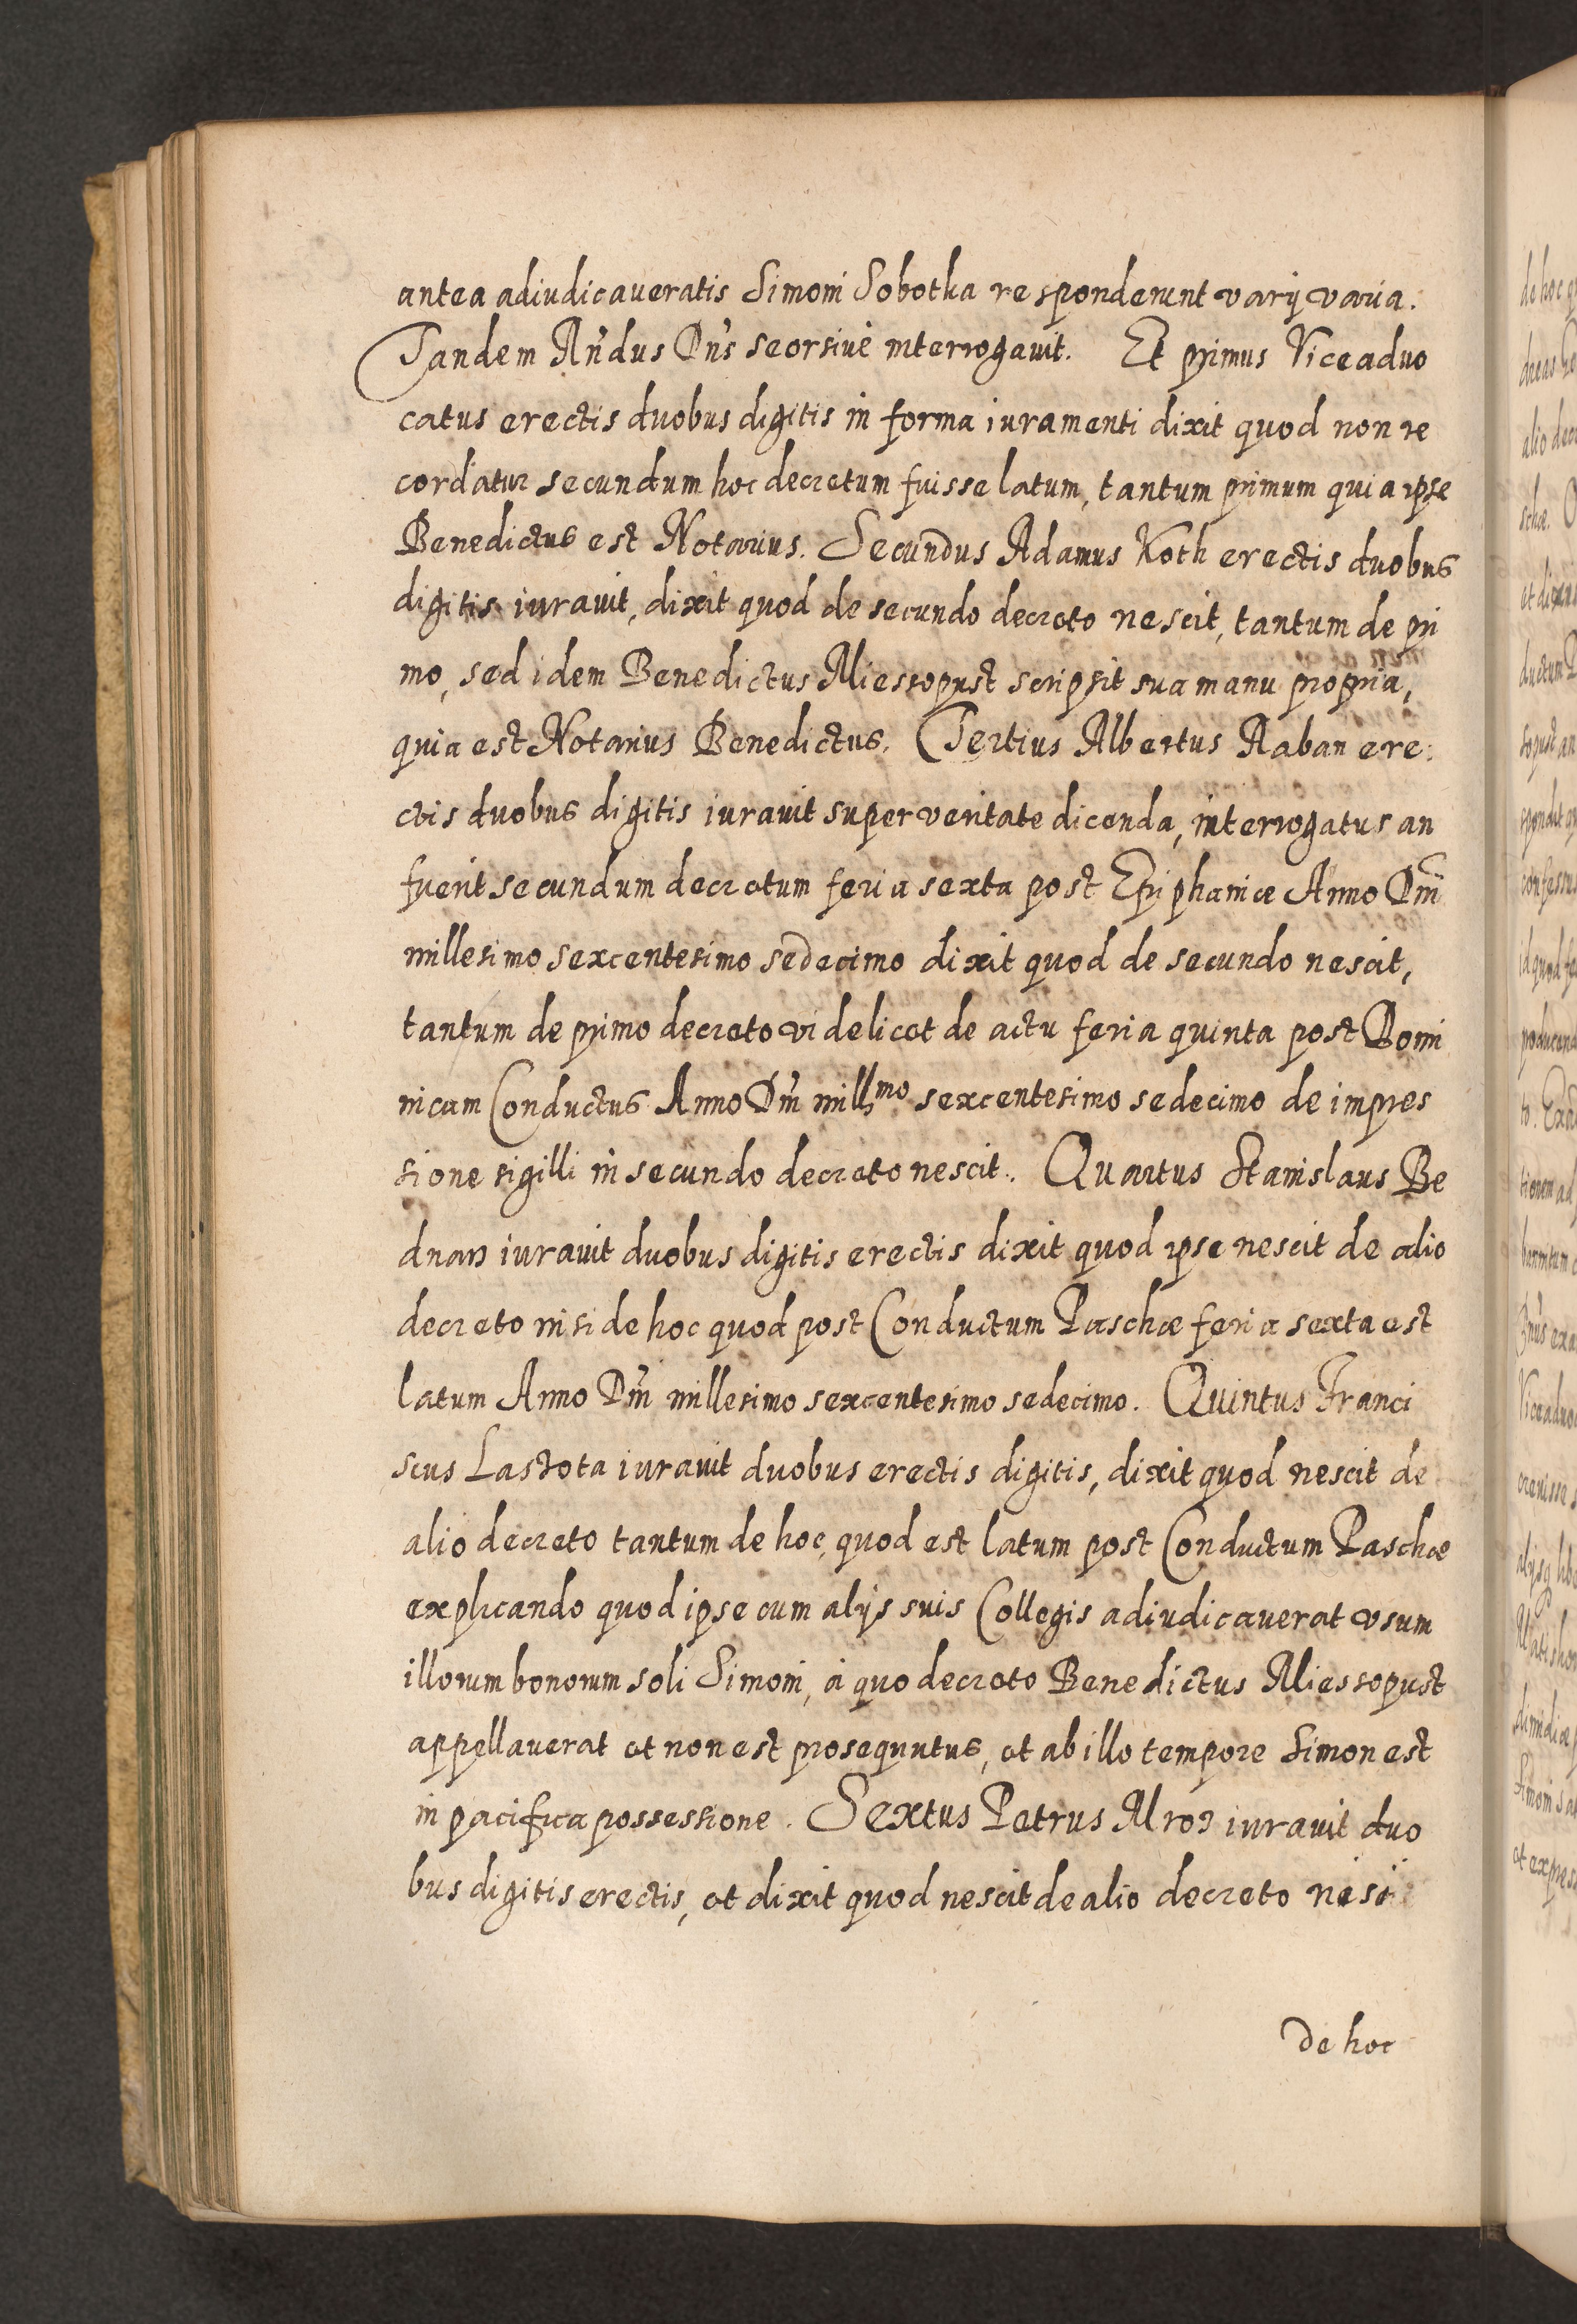 antea adiudicaueratis Simoni Sobotka responderunt varij varia.
Tandem Rn̄dus Dn̄s seorsiue interrogauit. Et primus Viceaduo
catus erectis duobus digitis in forma iuramenti dixit quod non re
cordatur secundum hoc decretum fuisse latum, tantum primum quia ipse
Benedictus est Notarius. Secundus Adamus Koth erectis duobus
digitis iurauit, dixit quod de secundo decreto nescit, tantum de pri
mo, sed idem Benedictus Miessopust scripsit sua manu propria,
quia est Notarius Benedictus. Tertius Albertus Raban ere:
ctis duobus digitis iurauit super veritate dicenda, interrogatus an
fuerit secundum decretum feria sexta post Epiphaniæ Anno Dn̄i
millesimo sexcentesimo sedecimo dixit quod de secundo nescit,
tantum de primo decreto videlicet de actu feria quinta post Domi
nicam Conductus Anno Dn̄i mill͞mo sexcentesimo sedecimo de impres
sione sigilli in secundo decreto nescit. Quartus Stanislaus Be
dnarz iurauit duobus digitis erectis dixit quod ipse nescit de alio
decreto nisi de hoc quod post Conductum Paschæ feria sexta est
latum Anno Dn̄i millesimo sexcentesimo sedecimo. Quintus Franci
scus Lassota iurauit duobus erectis digitis, dixit quod nescit de
alio decreto tantum de hoc, quod est latum post Conductum Paschæ
explicando quod ipse cum alijs suis Collegis adiudicauerat vsum
illorum bonorum soli Simoni, à quo decreto Benedictus Miessopust
appellauerat et non est prosequutus, et ab illo tempore Simon est
in pacifica possessione. Sextus Petrus Mroz iurauit duo
bus digitis erectis, et dixit quod nescit de alio decreto nisi
de hoc